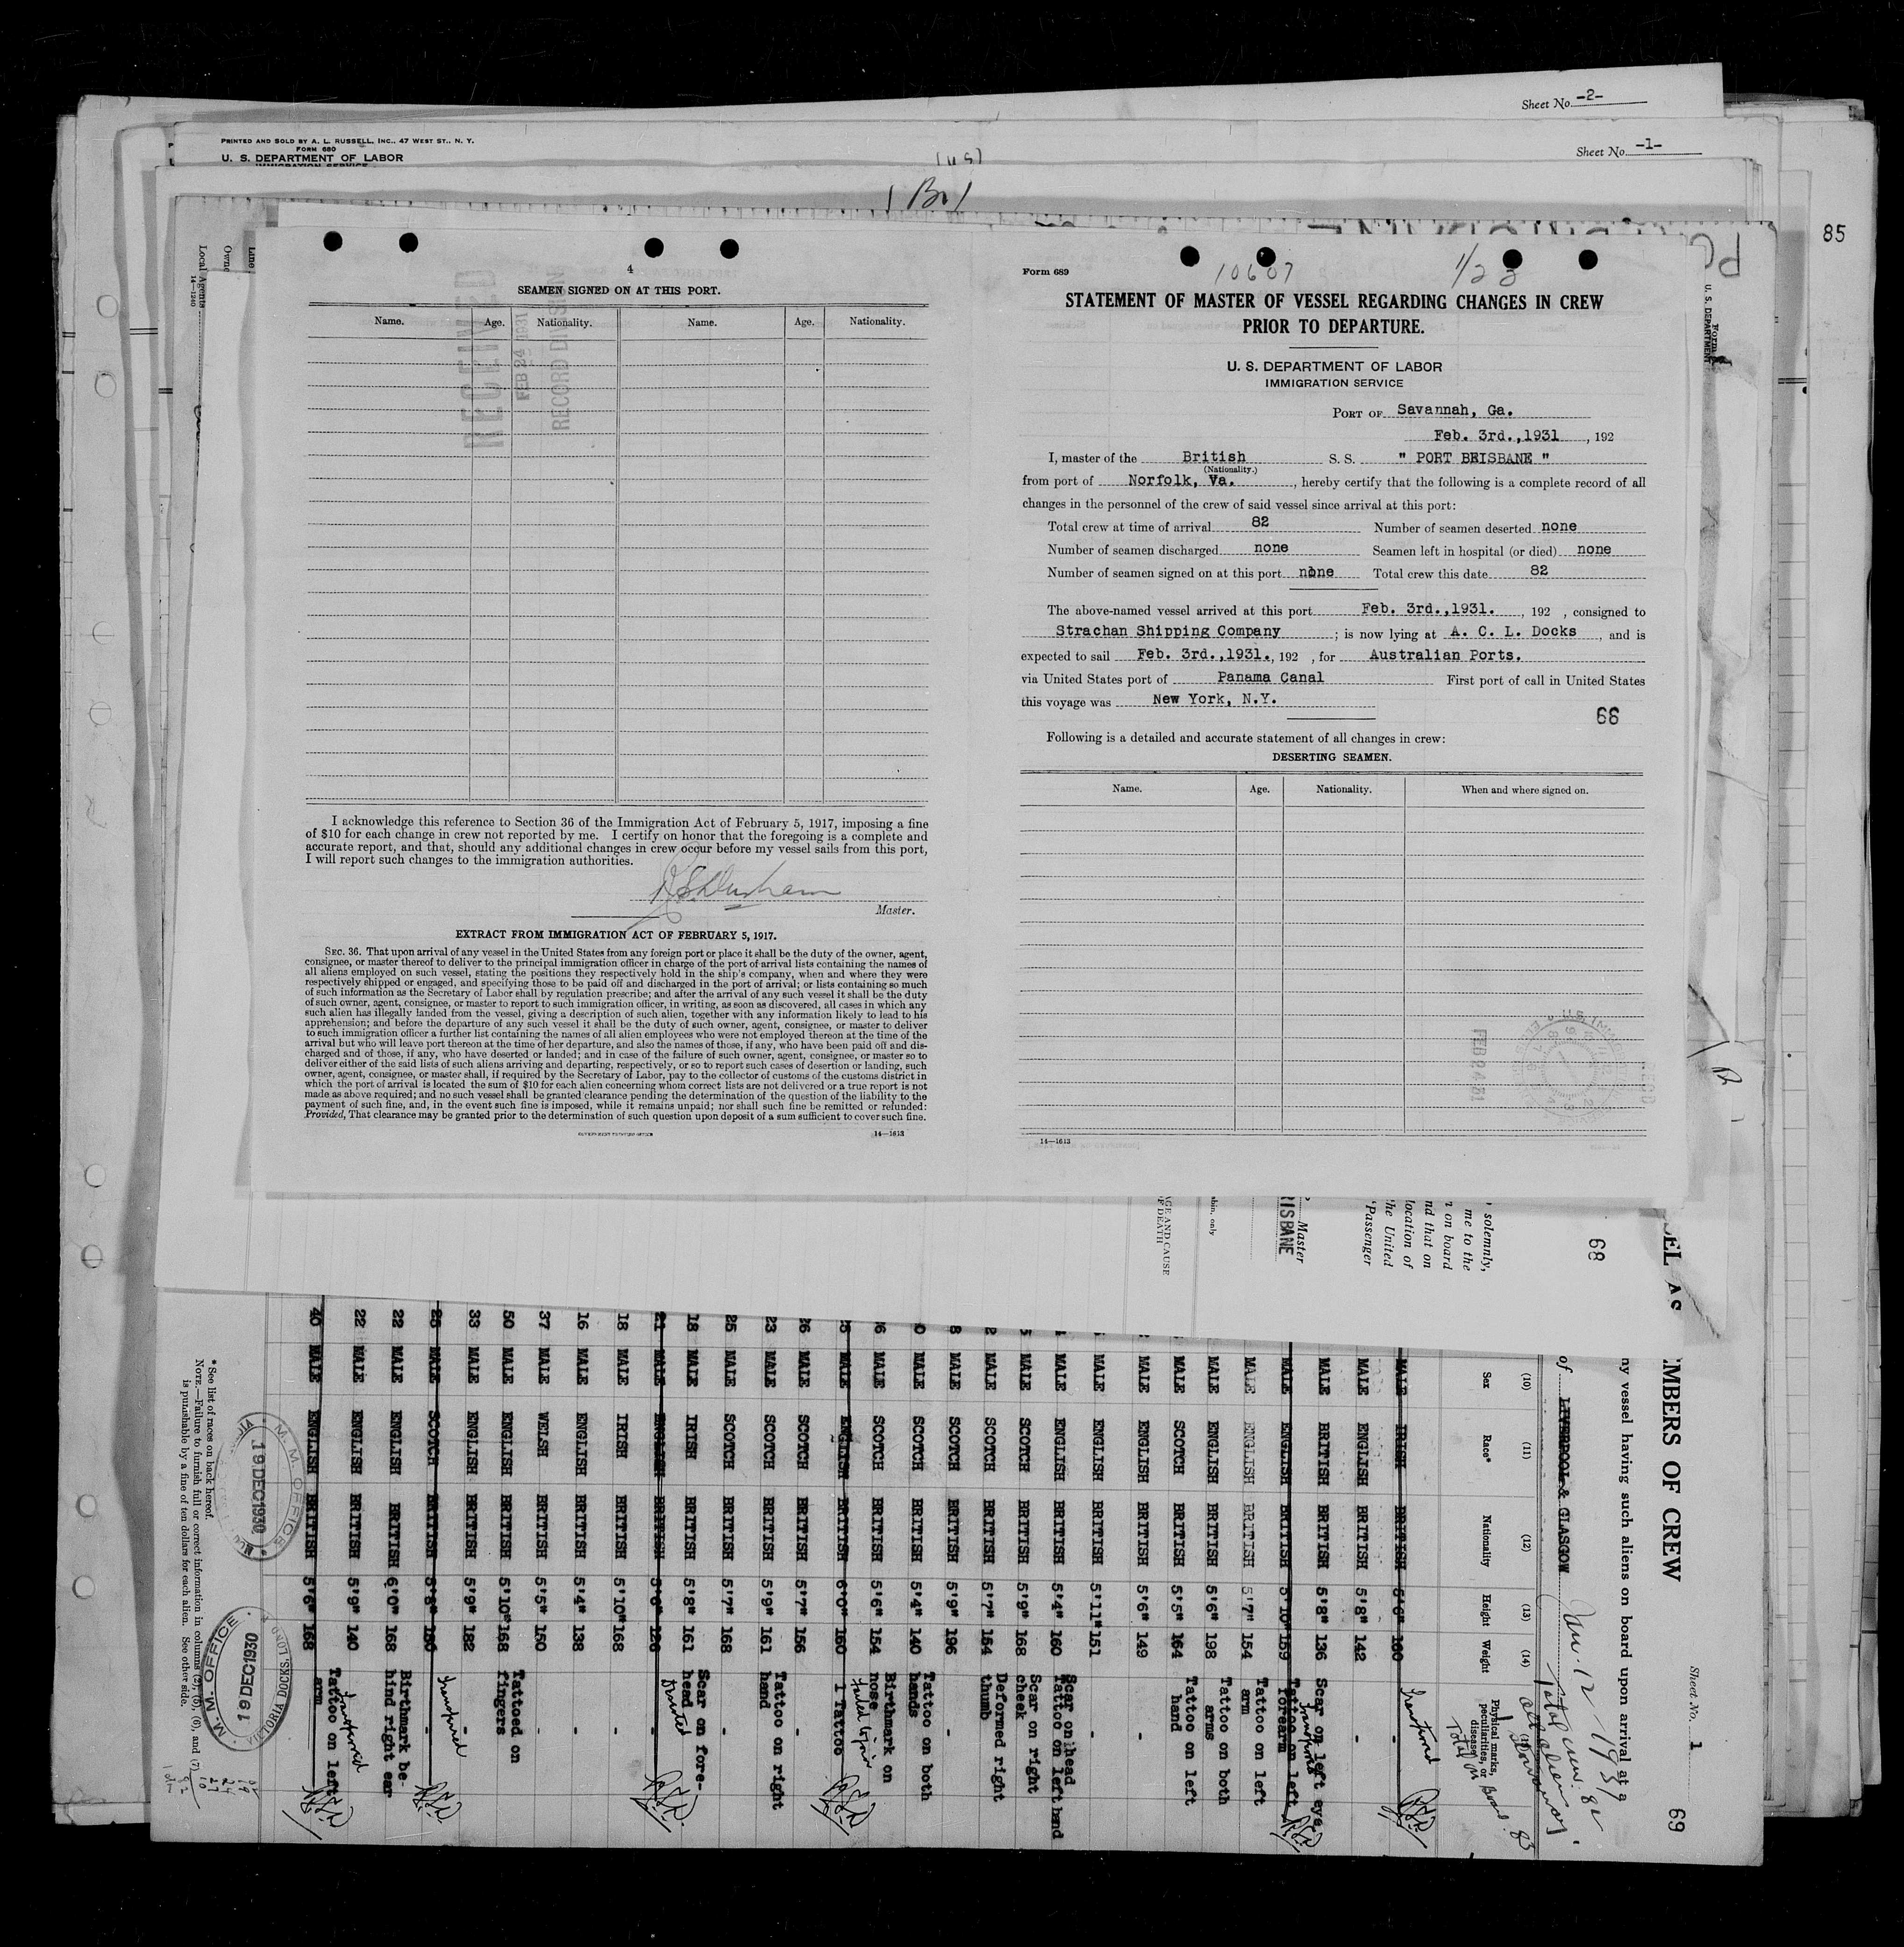 Sheet No. -2-
PRINTED AND SOLD BY A. L. RUSSELL, INC., 47 WEST ST., N. Y.
FORM 680
U. S. DEPARTMENT OF LABOR
Sheet No. -1-
85
4
SEAMEN SIGNED ON AT THIS PORT.
Name. Age. Nationality. Name. Age. Nationality.
RECEIVED
FEB 24 1931
RECORD DIVISION
I acknowledge this reference to Section 36 of the Immigration Act of February 5, 1917, imposing a fine
of $10 for each change in crew not reported by me. I certify on honor that the foregoing is a complete and
accurate report, and that, should any additional changes in crew occur before my vessel sails from this port,
I will report such changes to the immigration authorities.
Master.
EXTRACT FROM IMMIGRATION ACT OF FEBRUARY 5, 1917.
SEC. 36. That upon arrival of any vessel in the United States from any foreign port or place it shall be the duty of the owner, agent,
consignee, or master thereof to deliver to the principal immigration officer in charge of the port of arrival lists containing the names of
all aliens employed on such vessel, stating the positions they respectively hold in the ship's company, when and where they were
respectively shipped or engaged, and specifying those to be paid off and discharged in the port of arrival; or lists containing so much
of such information as the Secretary of Labor shall by regulation prescribe; and after the arrival of any such vessel it shall be the duty
of such owner, agent, consignee, or master to report to such immigration officer, in writing, as soon as discovered, all cases in which any
such alien has illegally landed from the vessel, giving a description of such alien, together with any information likely to lead to his
apprehension; and before the departure of any such vessel it shall be the duty of such owner, agent, consignee, or master to deliver
to such immigration officer a further list containing the names of all alien employees who were not employed thereon at the time of the
arrival but who will leave port thereon at the time of her departure, and also the names of those, if any, who have been paid off and dis-
charged and of those, if any, who have deserted or landed; and in case of the failure of such owner, agent, consignee, or master so to
deliver either of the said lists of such aliens arriving and departing, respectively, or so to report such cases of desertion or landing, such
owner, agent, consignee, or master shall, if required by the Secretary of Labor, pay to the collector of customs of the customs district in
which the port of arrival is located the sum of $10 for each alien concerning whom correct lists are not delivered or a true report is not
made as above required; and no such vessel shall be granted clearance pending the determination of the question of the liability to the
payment of such fine, and, in the event such fine is imposed, while it remains unpaid; nor shall such fine be remitted or refunded:
Provided, That clearance may be granted prior to the determination of such question upon deposit of a sum sufficient to cover such fine.
GOVERNMENT PRINTING OFFICE 14—1613
Form 689
10607
1/23
STATEMENT OF MASTER OF VESSEL REGARDING CHANGES IN CREW
PRIOR TO DEPARTURE.
U. S. DEPARTMENT OF LABOR
IMMIGRATION SERVICE
PORT OF Savannah, Ga.
Feb. 3rd.,1931 , 192
I, master of the British S. S. " PORT BEISBANE "
(Nationality.)
from port of Norfolk, Va. , hereby certify that the following is a complete record of all
changes in the personnel of the crew of said vessel since arrival at this port:
Total crew at time of arrival 82 Number of seamen deserted none
Number of seamen discharged none Seamen left in hospital (or died) none
Number of seamen signed on at this port none Total crew this date 82
The above-named vessel arrived at this port Feb. 3rd.,1931. , 192 , consigned to
Strachan Shipping Company ; is now lying at A. C. L. Docks , and is
expected to sail Feb. 3rd.,1931. , 192 , for Australian Ports.
via United States port of Panama Canal First port of call in United States
this voyage was New York, N.Y.
Following is a detailed and accurate statement of all changes in crew:
DESERTING SEAMEN.
Name. Age. Nationality. When and where signed on.
FEB 24 31
14—1613
68
69
Sheet No. 1
MBERS OF CREW
ny vessel having such aliens on board upon arrival at a
of LIVERPOOL & GLASGOW
(10) (11) (12) (13) (14)
Sex Race* Nationality Height Weight Physical marks, peculiarities, or disease
MALE IRISH BRITISH 5'6" 160 - Transferred
MALE ENGLISH BRITISH 5'8" 142 -
MALE BRITISH BRITISH 5'8" 136 Scar on left eye
MALE ENGLISH BRITISH 5'10" 159 Tattoo on left forearm
MALE ENGLISH BRITISH 5'7" 154 Tattoo on left arm
MALE ENGLISH BRITISH 5'6" 198 Tattoo on both arms
MALE SCOTCH BRITISH 5'5" 164 Tattoo on left hand
MALE ENGLISH BRITISH 5'6" 149 -
MALE ENGLISH BRITISH 5'11" 151 -
MALE ENGLISH BRITISH 5'4" 160 Scar on head Tattoo on left hand
MALE SCOTCH BRITISH 5'9" 168 Scar on right cheek
MALE SCOTCH BRITISH 5'7" 154 Deformed right thumb
MALE SCOTCH BRITISH 5'9" 196 -
MALE SCOTCH BRITISH 5'4" 140 Tattoo on both hands
MALE SCOTCH BRITISH 5'6" 154 Birthmark on nose
MALE ENGLISH BRITISH 6'0" 160 1 Tattoo Failed to join
26 MALE SCOTCH BRITISH 5'7" 156 -
23 MALE SCOTCH BRITISH 5'9" 161 Tattoo on right hand
25 MALE SCOTCH BRITISH 5'7" 168 -
18 MALE IRISH BRITISH 5'8" 161 Scar on fore-head
21 MALE ENGLISH BRITISH 5'6" 126 - Deserted
18 MALE IRISH BRITISH 5'10" 168 -
16 MALE ENGLISH BRITISH 5'4" 138 -
37 MALE WELSH BRITISH 5'5" 150 -
50 MALE ENGLISH BRITISH 5'10" 168 Tattoed on fingers
33 MALE ENGLISH BRITISH 5'9" 182 -
MALE SCOTCH BRITISH 5'8" - Transferred
22 MALE ENGLISH BRITISH 6'0" 168 Birthmark be-hind right ear
22 MALE ENGLISH BRITISH 5'9" 140 -
40 MALE ENGLISH BRITISH 5'6" 168 Tattoo on left arm
* See list of races on back hereof.
NOTE.—Failure to furnish full or correct information in columns (2), (5), (6), and (7)
is punishable by a fine of ten dollars for each alien. See other side.
M. M. OFFICE
19 DEC 1930
M. M. OFFICE
19 DEC 1930
VICTORIA DOCKS, LOND